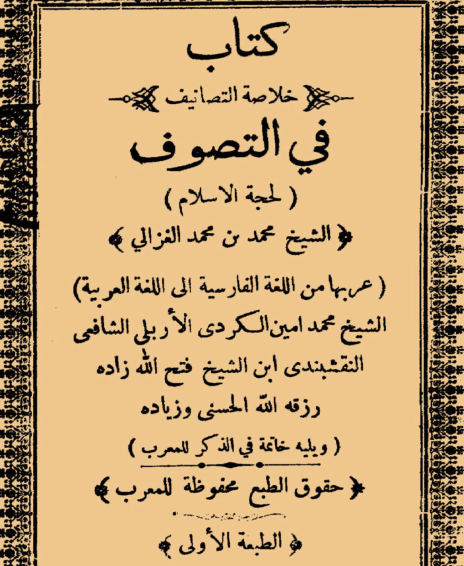 كتاب
خلاصة التصانيف
في التصوف
( لحجة الاسلام )
﴿ الشيخ محمد بن محمد الغزالي ﴾
( عربها من اللغة الفارسية الى اللغة العربية)
الشيخ محمد امين الكردى الأربلى الشافعى
النقشبندى ابن الشيخ فتح الله زاده
رزقه الله الحسنى وزياده
( ويليه خاتمة في الذكر للمعرب )
﴿ حقوق الطبع محفوظة للمعرب ﴾
﴿ الطبعة الأولى ﴾